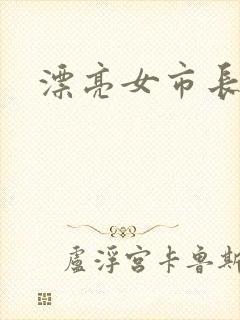 漂亮女市長
盧浮宮卡魯斯